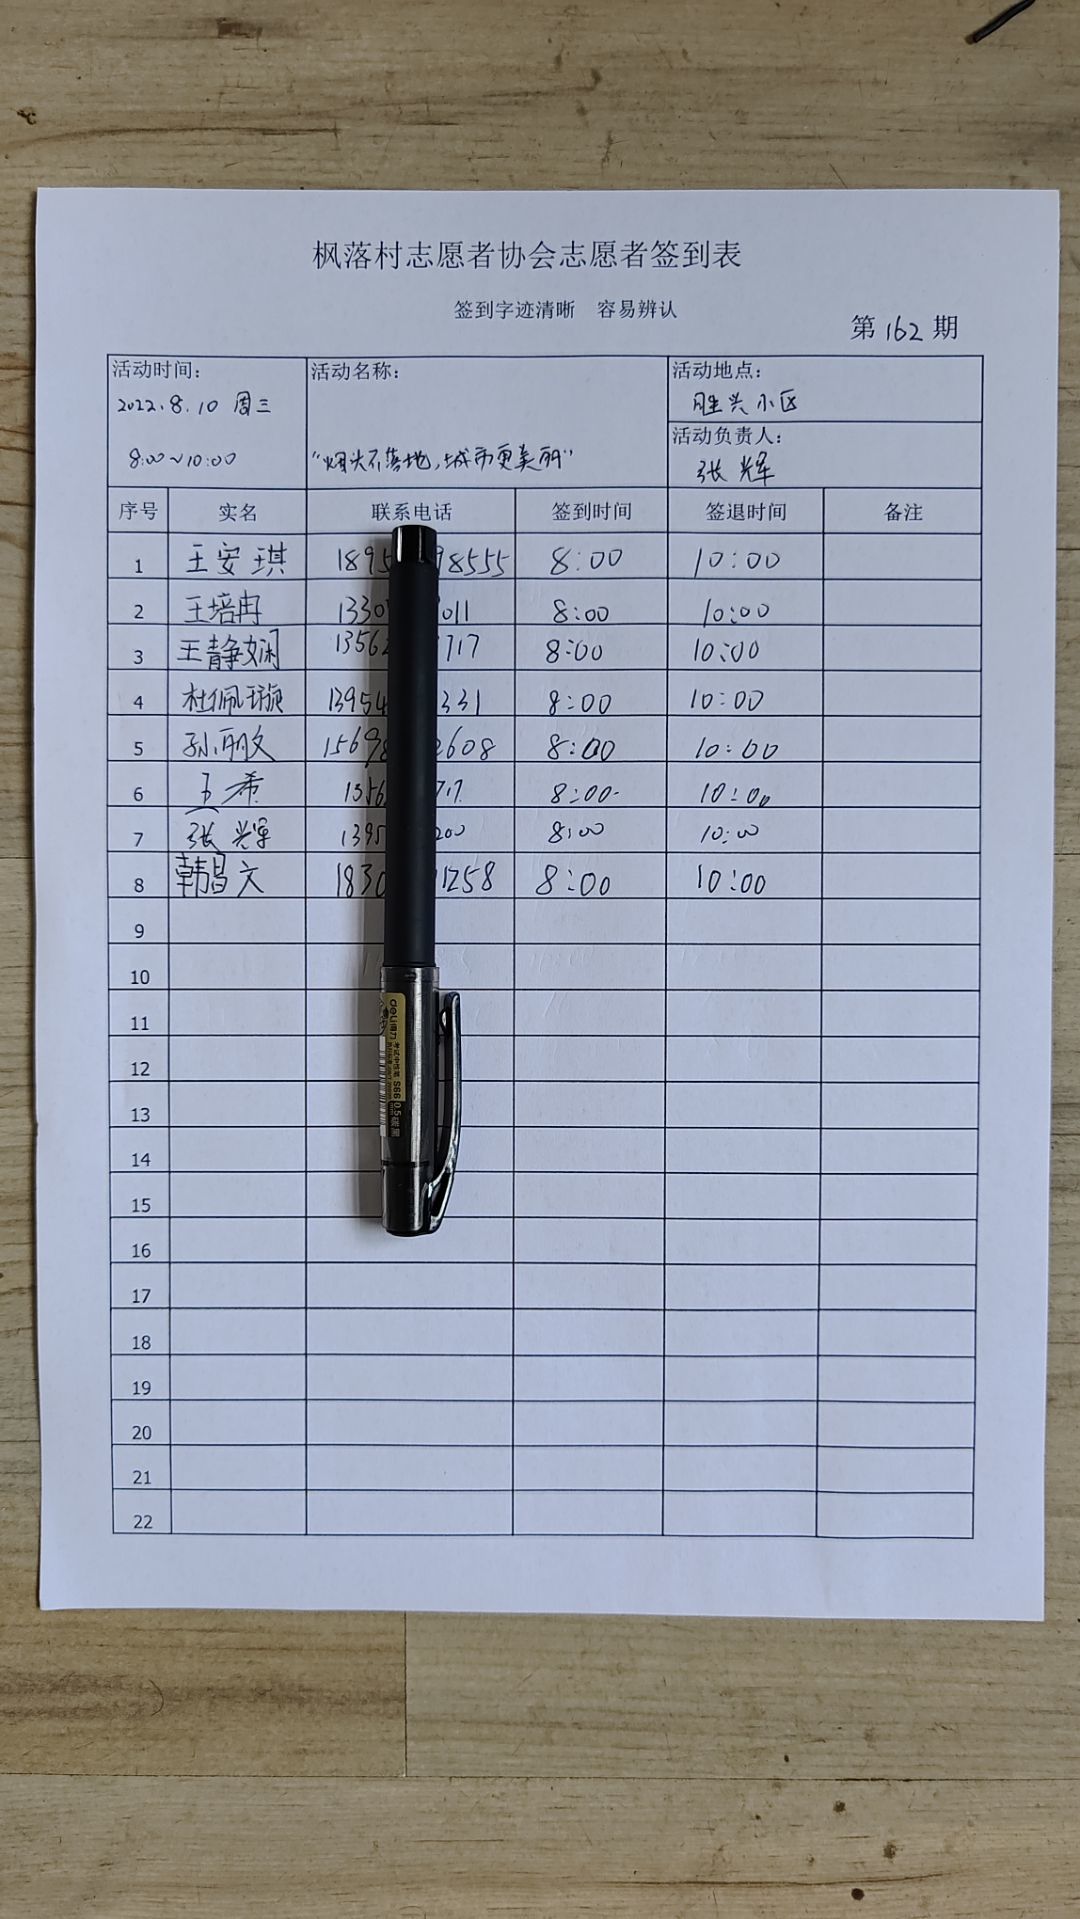 枫落村志愿者协会志愿者签到表
签到字迹清晰 容易辨认
第162期
活动时间: 活动名称: 活动地点:
2022.8.10 周三 胜兴小区
活动负责人:
8:00~10:00 “烟头不落地,城市更美丽” 张辉
序号 实名 联系电话 签到时间 签退时间 备注
1 王安琪 1895 98555 8:00 10:00
2 王培冉 1330 011 8:00 10:00
3 王静娴 1356 717 8:00 10:00
4 杜佩璇 13954 331 8:00 10:00
5 孙丽文 15698 2608 8:00 10:00
6 王希 1356 717 8:00 10:00
7 张辉 1395 200 8:00 10:00
8 韩昌文 1830 1258 8:00 10:00
9
10
11
12
13
14
15
16
17
18
19
20
21
22
deli 得力 考试中性笔 S66 0.5 碳黑